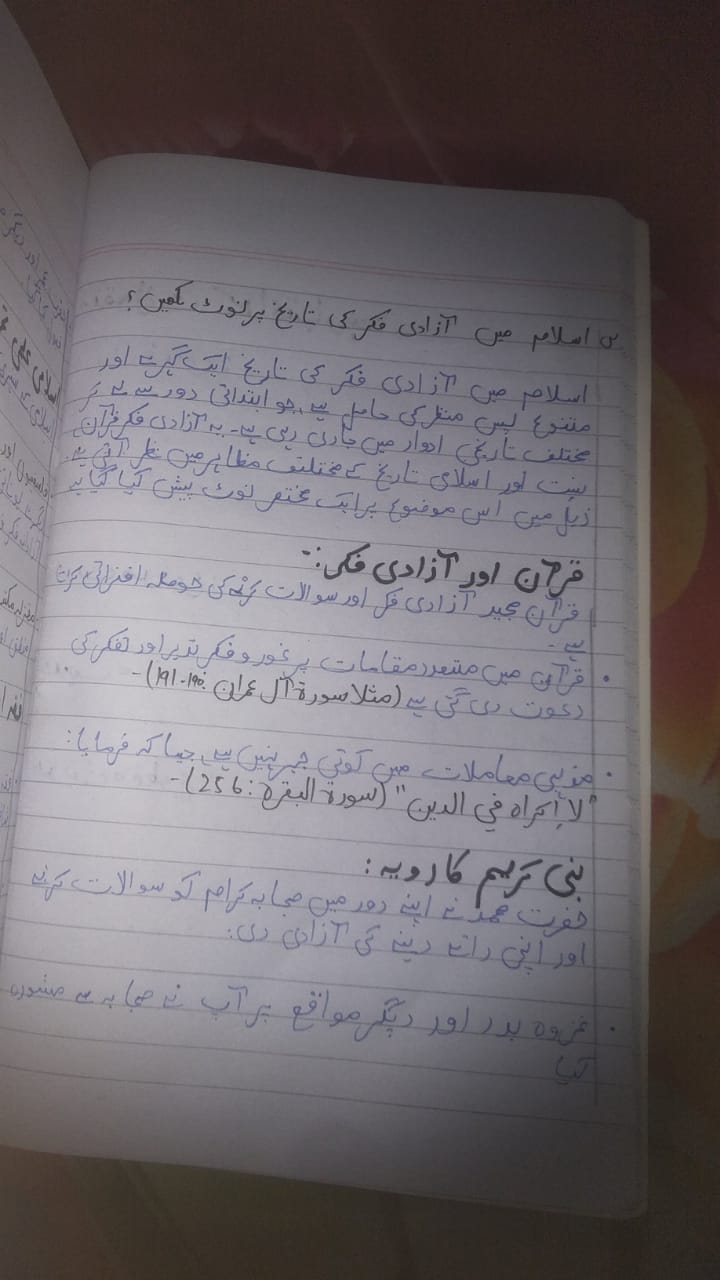 س اسلام میں آزادی فکر کی تاریخ پر نوٹ لکھیں؟
اسلام میں آزادی فکر کی تاریخ ایک گہرے اور
متنوع پس منظر کی حامل ہے جو ابتدائی دور سے لے کر
مختلف تاریخی ادوار میں جاری رہی ہے۔ یہ آزادی فکر قرآن
سنت اور اسلامی تاریخ کے مختلف مظاہر میں نظر آتی ہے۔
ذیل میں اس موضوع پر ایک مختصر نوٹ پیش کیا گیا ہے
قرآن اور آزادی فکر:-
قرآن مجید آزادی فکر اور سوالات کرنے کی حوصلہ افزائی کرتا
ہے۔
• قرآن میں متعدد مقامات پر غور و فکر تدبر اور تفکر کی
دعوت دی گئی ہے (مثلا سورۃ آل عمران ۱۹۰-۱۹۱)-
• مذہبی معاملات میں کوئی جبر نہیں ہے جیسا کہ فرمایا:
"لا إكراه في الدين" (سورة البقرة: 256)-
نبی کریم کا رویہ:
حضرت محمد نے اپنے دور میں صحابہ کرام کو سوالات کرنے
اور اپنی رائے دینے کی آزادی دی:
• غزوہ بدر اور دیگر مواقع پر آپ نے صحابہ سے مشورہ
کیا